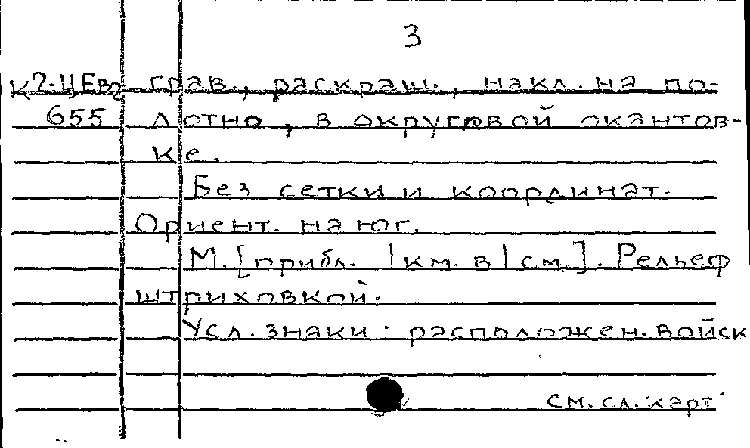 3
К2-ЦЕв2 грав., раскраш., накл. на по-
655 лотно, в округовой окантов-
ке.
Без сетки и координат.
Ориент. на юг.
М. [прибл. 1 км. в 1 см.]. Рельеф
штриховкой.
Усл. знаки: расположен. войск
см. сл. карт.